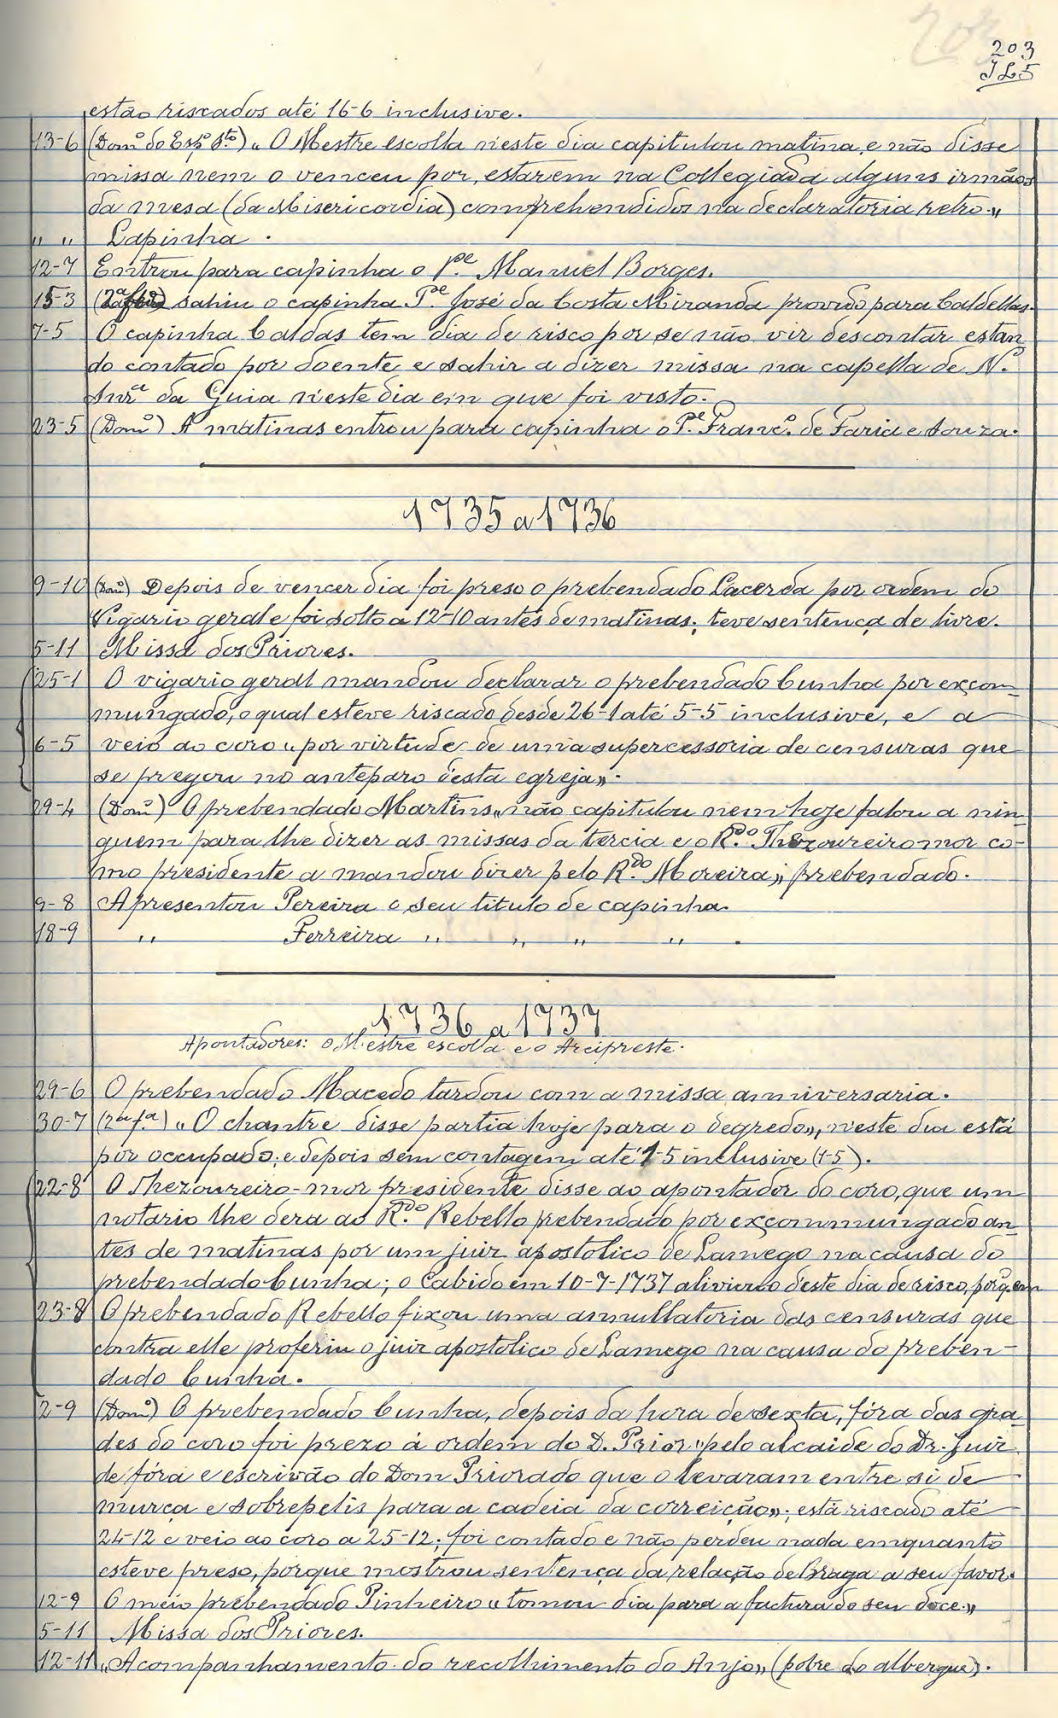 203
estão riscados até 16-6 inclusive.
13-6 (Domº do Espº Stº) „ O Mestre escolla n'este dia capitulou matina, e não disse
missa nem o venceu por estarem na Collegiada alguns irmãos
da mesa (da Misericordia) comprehendidos na declaratoria retro.„
„ „ Lapinha.
12-7 Entrou para capinha o Pᵉ. Manuel Borges.
15-3 sahiu o capinha Pᵉ José da Costa Miranda provido para Caldellas.
7-5 O capinha Caldas tem dia de risco por se não vir descontar estan
do contado por doente e sahir a dizer missa na capella de N.
Snrª da Guia n'este dia em que foi visto.
23-5 (Domº) A matinas entrou para capinha o Pᵉ. Francº. de Faria e Souza.
1735 a 1736
9-10 (Domº) Depois de vencer dia foi preso o prebendado Lacerda por ordem do
Vigario geral e foi solto a 12-10 antes de matinas; teve sentença de livre.
5-11 Missa dos Priores.
25-1 O vigario geral mandou declarar o prebendado Cunha por excom-
mungado, o qual esteve riscado desde 26-1 até 5-5 inclusive, e a
6-5 veio ao coro „por virtude de uma supercessoria de censuras que
se pregou no anteparo desta egreja„.
29-4 (Domº) O prebendado Martins „não capitulou nem hoje falou a nin-
guem para lhe dizer as missas da tercia e o Rdº. Thezoureiro mor co-
mo presidente a mandou dizer pelo Rdº. Moreira„ prebendado.
9-8 Apresentou Pereira o seu titulo de capinha.
18-9 „ Ferreira „ „ „ „ .
1736 a 1737
Apontadores: o Mestre escolla e o Arcipreste.
29-6 O prebendado Macedo tardou com a missa anniversaria.
30-7 (2ª fª) „ O chantre disse partia hoje para o degredo„, n'este dia está
por occupado; e depois sem contagem até 1-5 inclusive (1-5).
22-8 O Thezoureiro-mor presidente disse ao apontador do coro, que um
notario lhe dera ao Rdº. Rebello prebendado por excommungado an-
tes de matinas por um juiz apostolico de Lamego na causa do
prebendado Cunha; o Cabido em 10-7-1737 aliviou-o deste dia de risco,
23-8 O prebendado Rebello fixou uma annullatoria das censuras que
contra elle proferiu o juiz apostolico de Lamego na causa do preben-
dado Cunha.
2-9 (Domº) O prebendado Cunha, depois da hora de sexta, fóra das gra-
des do coro foi prezo á ordem do D. Prior „pelo alcaide do Dr. Juiz
de fóra e escrivão do Dom Priorado que o levaram entre si de
murça e sobrepelis para a cadeia da correição„; está riscado até
24-12 e veio ao coro a 25-12; foi contado e não perdeu nada emquanto
esteve preso, porque mostrou sentença da relação de Braga a seu favor.
12-9 O meio prebendado Pinheiro „tomou dia para a factura do seu doce.„
5-11 Missa dos Priores.
12-11 „Acompanhamento do recolhimento do Anjo„ (pobre do albergue).